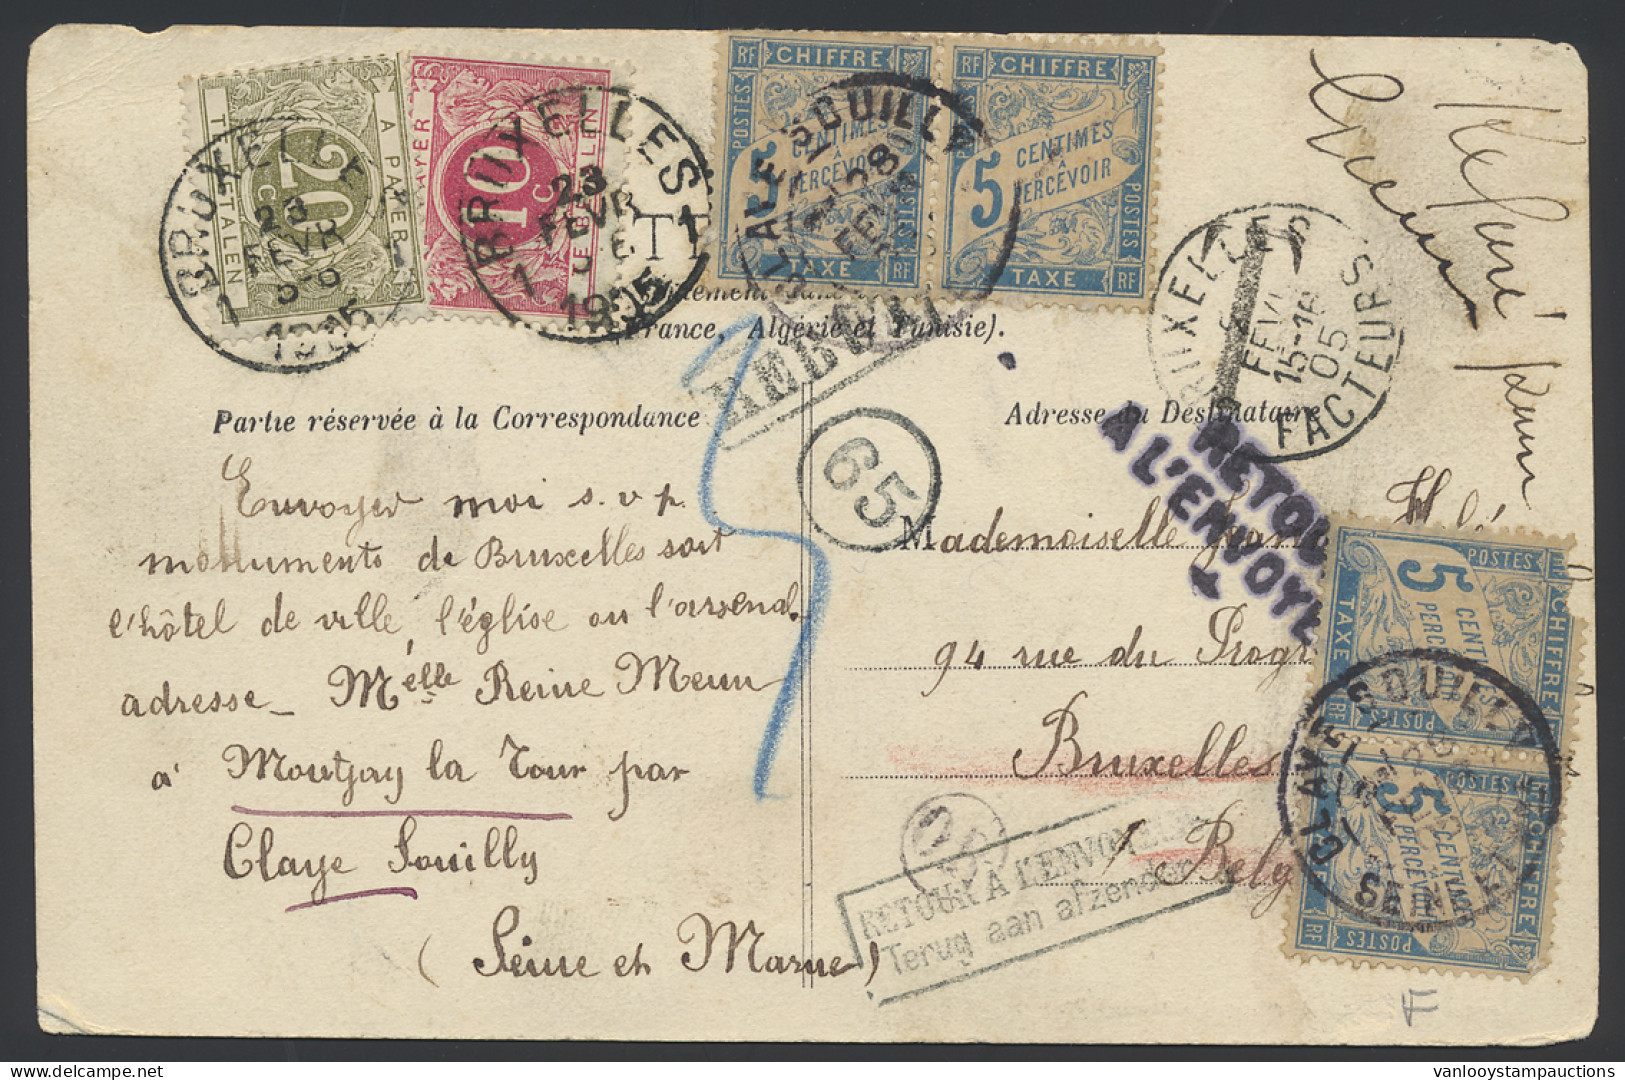 A PAYER
20 c
TE BETALEN
BRUXELLES
23 FEVR
1905
1
A PAYER
10 c
TE BETALEN
BRUXELLES 1
23 FEVR
1905
1
RF CHIFFRE
POSTES
5 CENTIMES À PERCEVOIR
TAXE RF
CLAYE SOUILLY
RF CHIFFRE
5 CENTIMES À PERCEVOIR
POSTES
TAXE RF
BRUXELLES
FEVR
15-16
05
FACTEURS
Refusé
(France, Algérie et Tunisie).
REBUT
Partie réservée à la Correspondance
Adresse du Destinataire
65
RETOUR
A L'ENVOYEUR
Envoyer moi s.v.p.
monuments de Bruxelles soit
l'hôtel de ville, l'église ou l'arsenal.
adresse _ Melle Reine Menu
à Montjay la Tour par
Claye Souilly
(Seine et Marne)
Mademoiselle Jean
94 rue du Progr
Bruxelles
Belg
RETOUR À L'ENVOYEUR
Terug aan afzender
POSTES RF
5 CENTIMES PERCEVOIR
CHIFFRE
TAXE
RF POSTES
CLAYE SOUILLY
SEINE ET
POSTES
5 CENTIMES À PERCEVOIR
CHIFFRE
RF POSTES RF
F
vanlooystampauctions